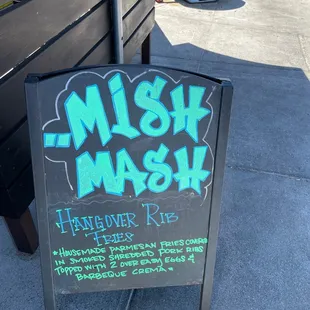 MISH
MASH
HANGOVER RIB
FRIES
*HOUSEMADE PARMESAN FRIES COVERED
IN SMOKED SHREDDED PORK RIBS
TOPPED WITH 2 OVER EASY EGGS &
BARBEQUE CREMA*